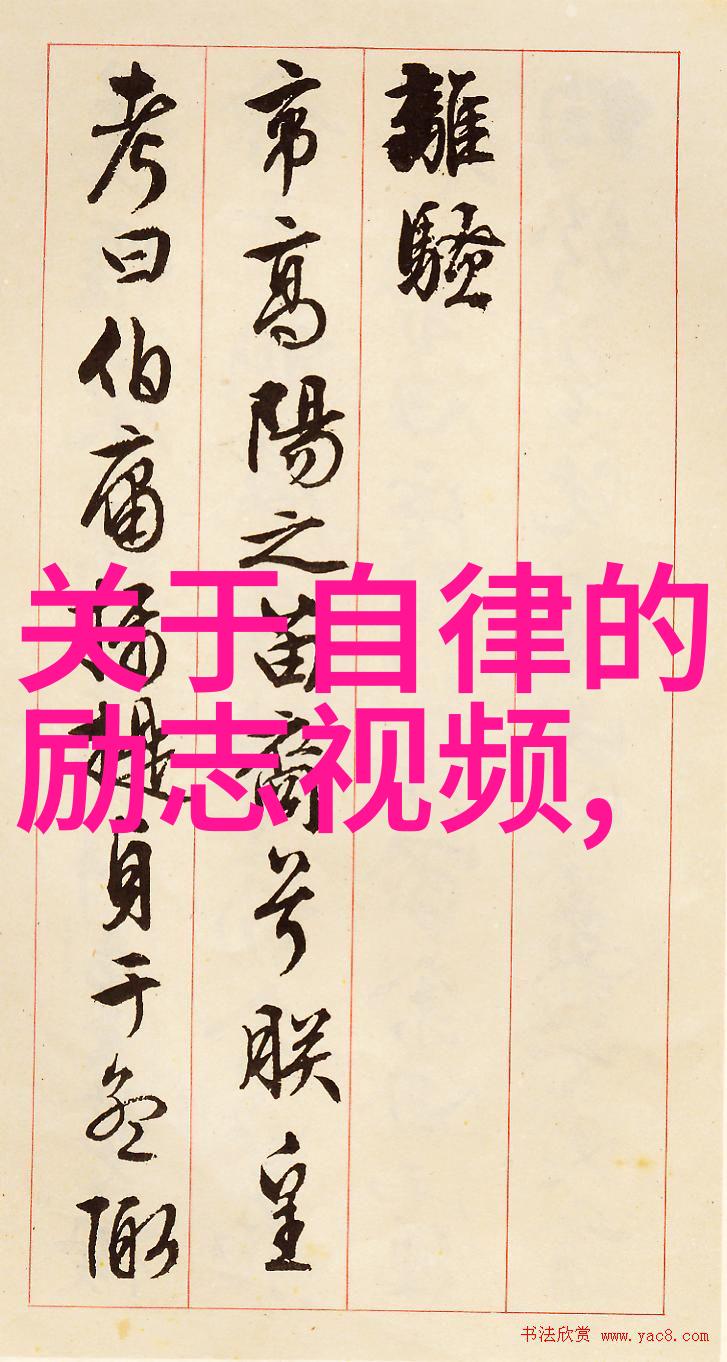 離騷
帝高陽之苗裔兮朕皇
考曰伯庸攝提貞于孟陬
关于自律的
励志视频,
书法欣赏 www.yac8.com